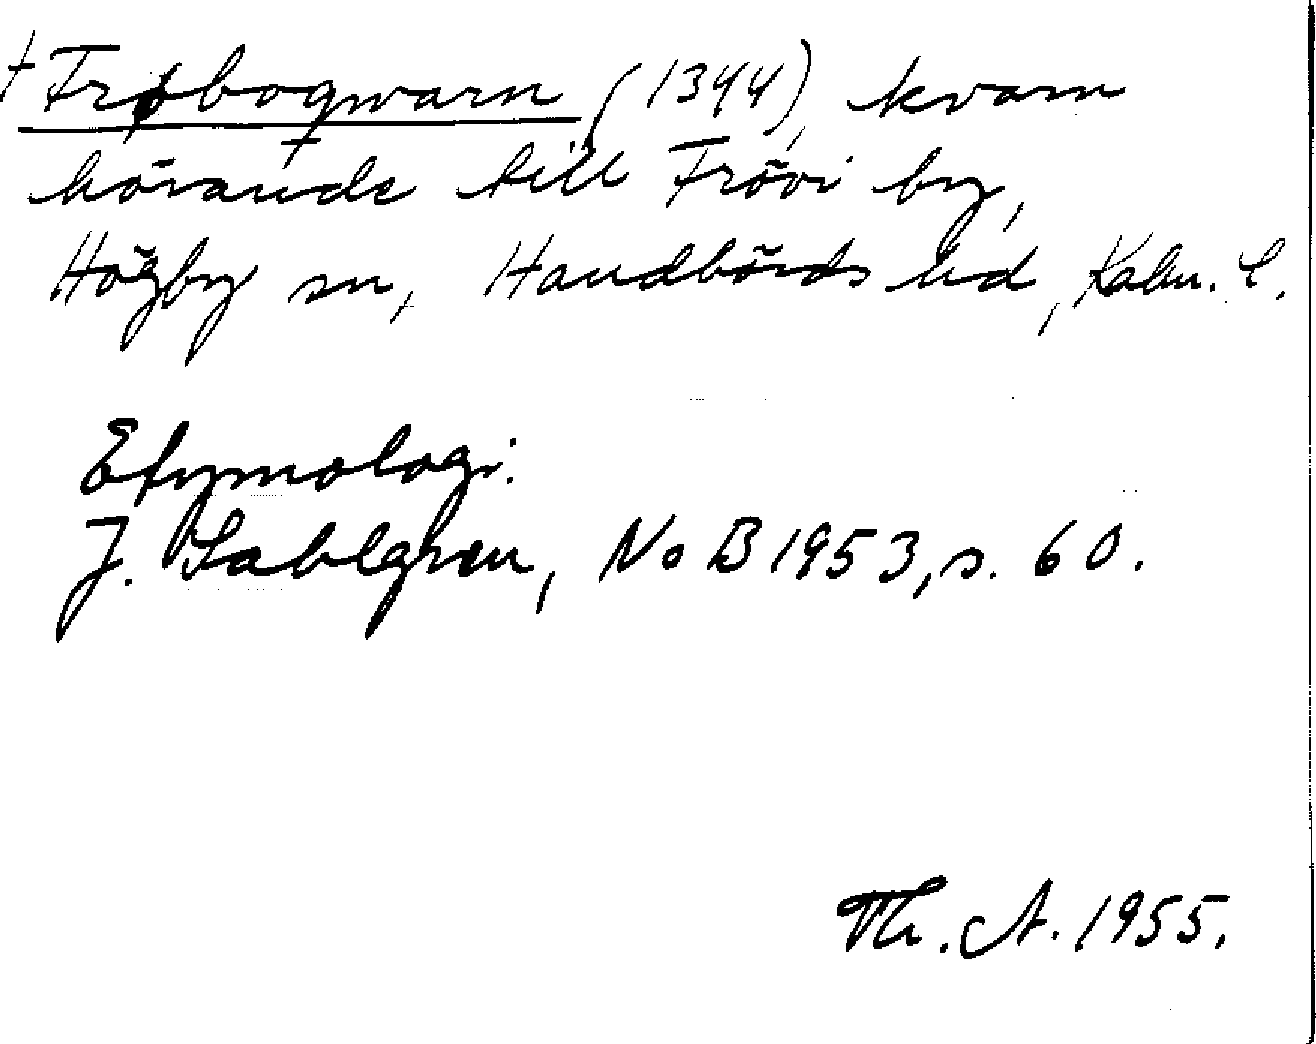 † Frøboqwarn (1344), kvarn
hörande till Frövi by,
Högby sn, Handbörds hd, Kalm. l.
Etymologi.
J. Sahlgren, NoB 1953, s. 60.
Th. A. 1955.